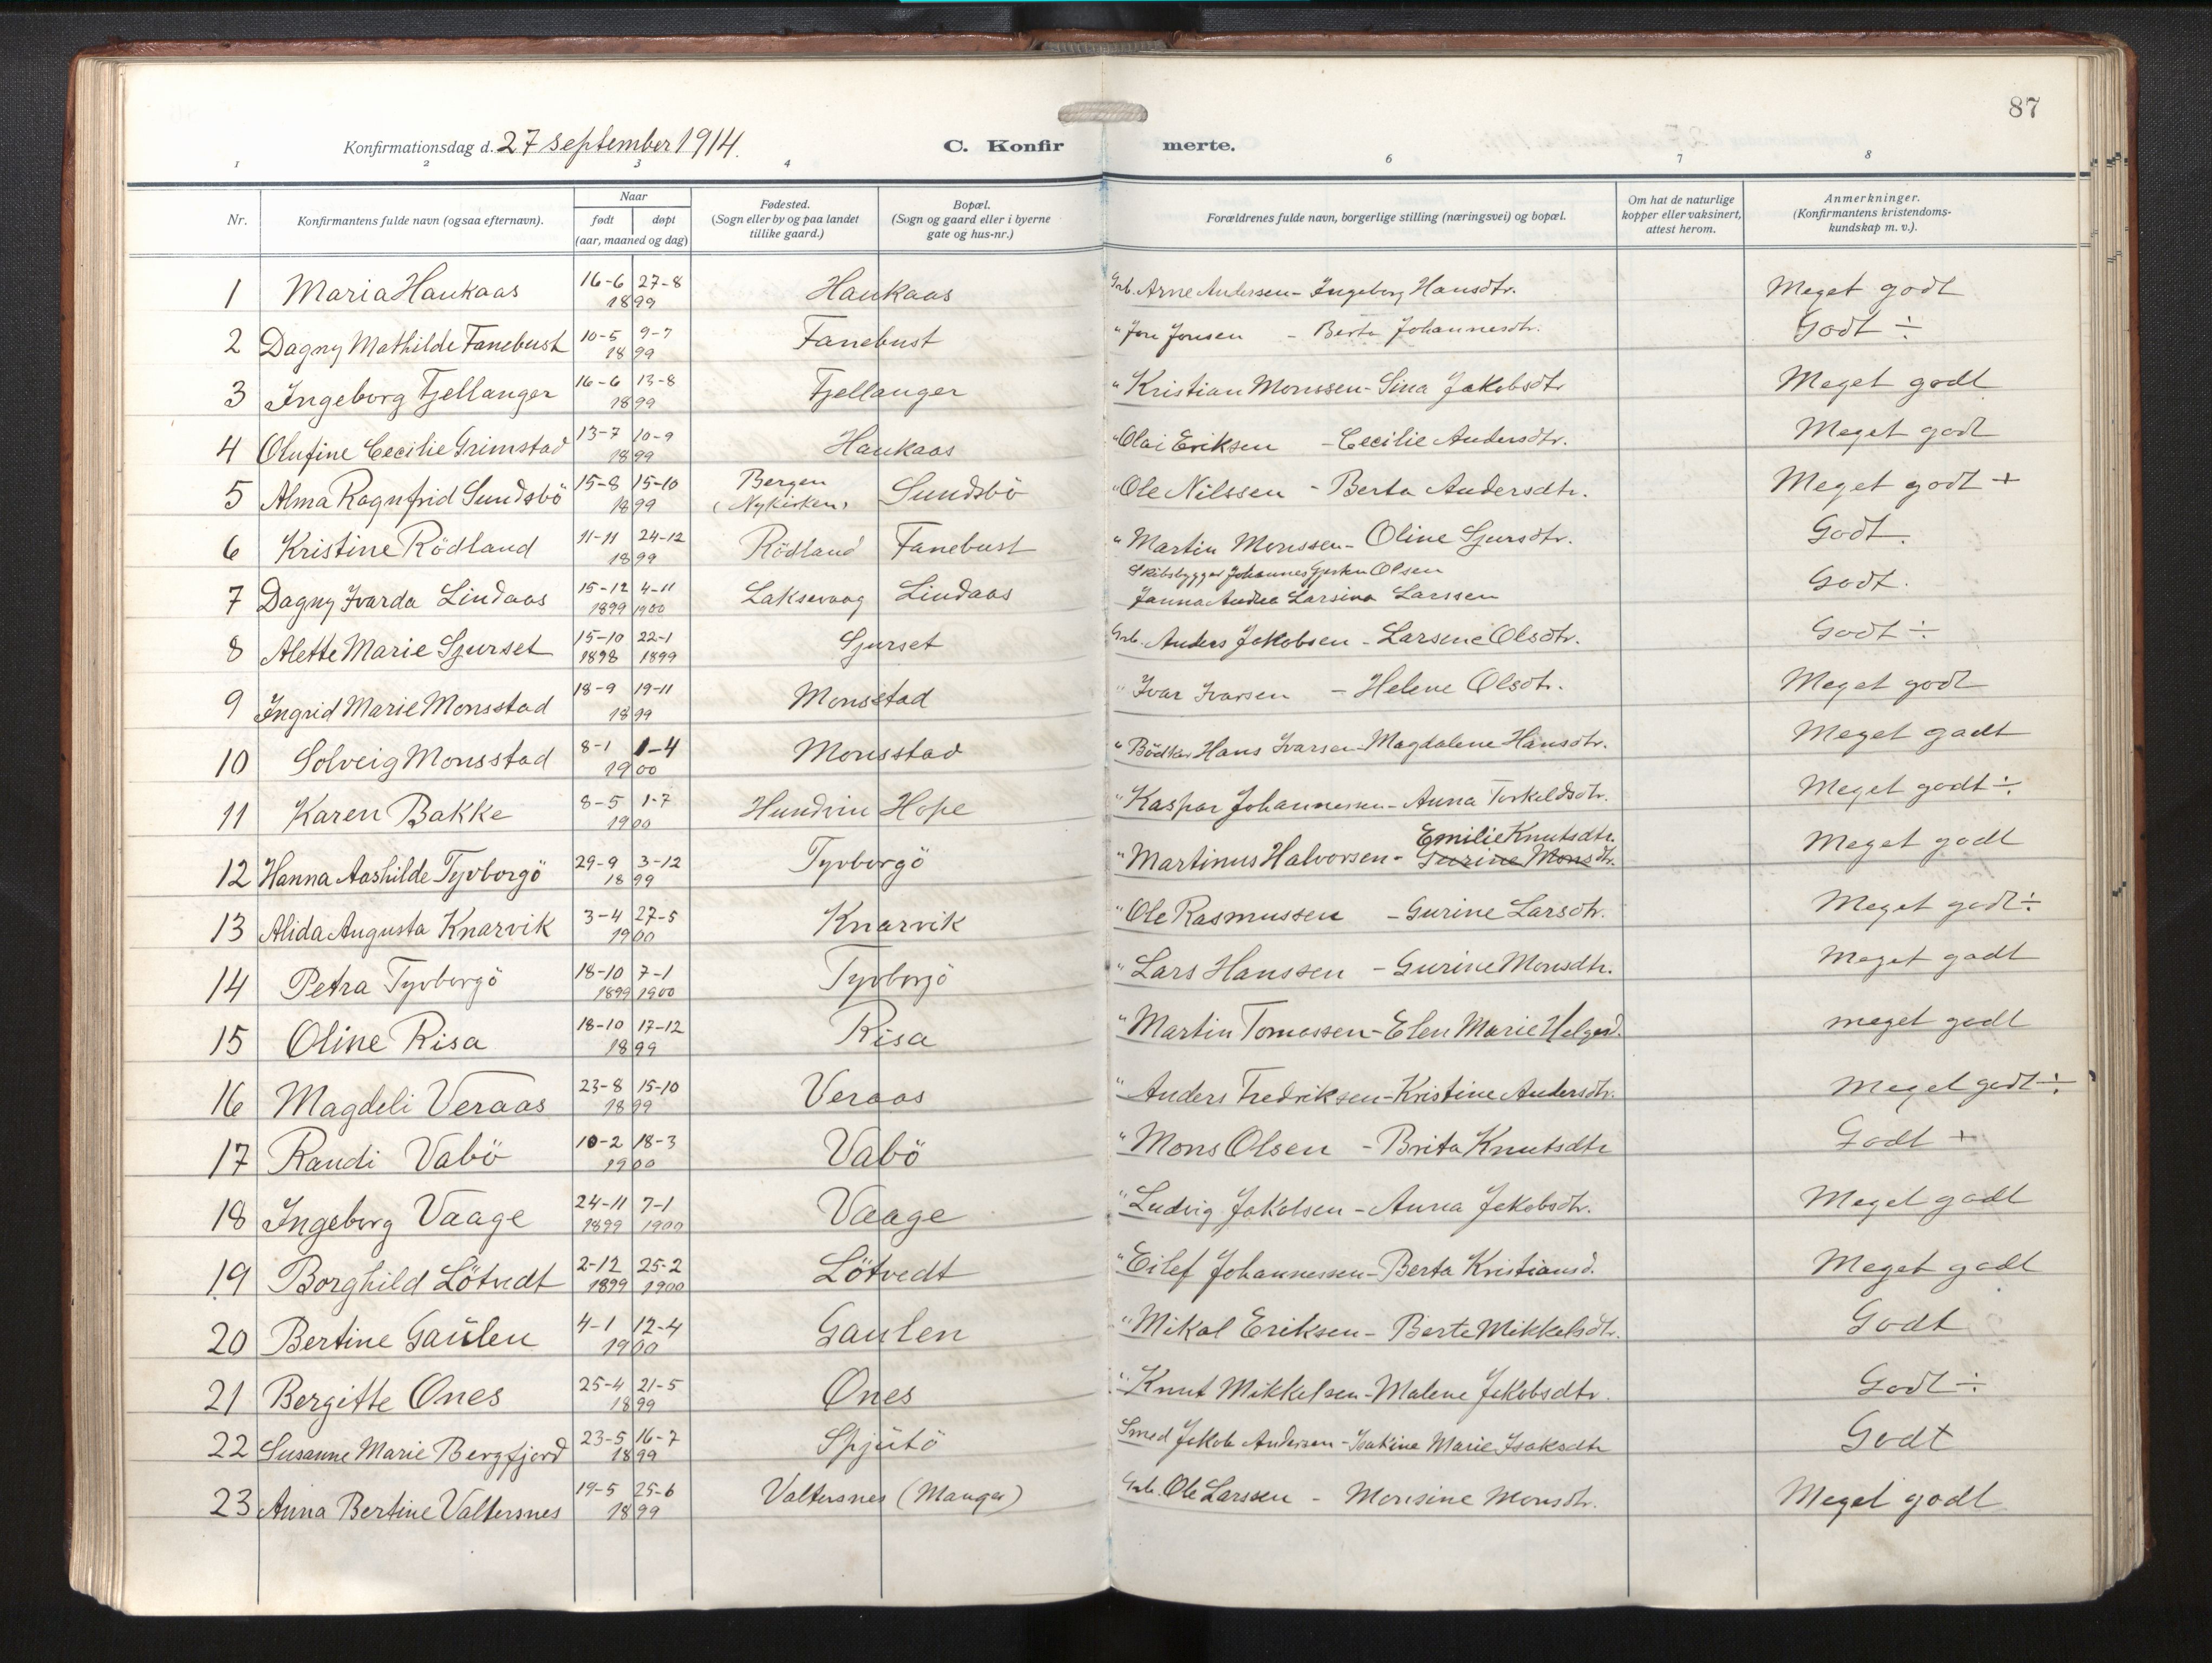 87
Konfirmationsdag d. 27 september 1914.
C. Konfirmerte.
1 2 3 4 6 7 8
Nr. Konfirmantens fulde navn (ogsaa efternavn). Naar født døpt (aar, maaned og dag) Fødested. (Sogn eller by og paa landet tillike gaard.) Bopæl. (Sogn og gaard eller i byerne gate og hus-nr.) Forældrenes fulde navn, borgerlige stilling (næringsvei) og bopæl. Om hat de naturlige kopper eller vaksinert, attest herom. Anmerkninger. (Konfirmantens kristendoms-kundskap m. v.).
1 Maria Haukaas 16-6 27-8 1899 Haukaas Grb. Arne Andersen - Ingeborg Hansdtr. Meget godt
2 Dagny Mathilde Fanebust 10-5 9-7 1899 Fanebust " Jon Jonsen - Berta Johannesdtr. Godt ÷
3 Ingeborg Fjellanger 16-6 13-8 1899 Fjellanger " Kristian Monssen - Sina Jakobsdtr Meget godt
4 Olufine Cecilie Grimstad 13-7 10-9 1899 Haukaas " Olai Eriksen - Cecilie Andersdtr. Meget godt
5 Alma Ragnfrid Sundsbö 15-8 15-10 1899 Bergen (Nykirken) Sundsbö " Ole Nilssen - Berta Andersdtr. Meget godt +
6 Kristine Rödland 11-11 24-12 1899 Rödland Fanebust " Martin Monssen - Oline Sjursdtr. Godt.
7 Dagny Ivarda Lindaas 15-12 4-11 1899 1900 Laksevaag Lindaas Skibsbygger Johannes Olsen
Janna Andrea Larsina Larssen Godt.
8 Alette Marie Sjurset 15-10 22-1 1898 1899 Sjurset Grb. Anders Jakobsen - Larsene Olsdtr. Godt ÷
9 Ingrid Marie Monsstad 18-9 19-11 1899 Monsstad " Ivar Ivarsen - Helene Olsdtr. Meget godt
10 Solveig Monsstad 8-1 1-4 1900 Monsstad " Bödker Hans Ivarsen - Magdalene Hansdtr. Meget godt
11 Karen Bakke 8-5 1-7 1900 Hundvin Hope " Kaspar Johannessen - Anna Terkeldsdtr. Meget godt ÷
12 Hanna Aashilde Tyvborgö 29-9 3-12 1899 Tyvborgö " Martinus Halvorsen - Emilie Knutsdtr. Gurine Monsdtr. Meget godt
13 Alida Augusta Knarvik 3-4 27-5 1900 Knarvik " Ole Rasmussen - Gurine Larsdtr. Meget godt ÷
14 Petra Tyvborgö 18-10 7-1 1899 1900 Tyvborgö " Lars Hanssen - Gurine Monsdtr. Meget godt
15 Oline Risa 18-10 17-12 1899 Risa " Martin Tomassen - Elen Marie Helgesd. meget godt
16 Magdeli Veraas 23-8 15-10 1899 Veraas " Anders Fredriksen - Kristine Andersdtr. Meget godt ÷
17 Randi Vabö 10-2 18-3 1900 Vabö " Mons Olsen - Brita Knutsdtr Godt +
18 Ingeborg Vaage 24-11 7-1 1899 1900 Vaage " Ludvig Jakobsen - Anna Jakobsdtr. Meget godt
19 Borghild Lötvedt 2-12 25-2 1899 1900 Lötvedt " Eilef Johannessen - Berta Kristiansd. Meget godt
20 Bertine Gaulen 4-1 12-4 1900 Gaulen " Mikal Eriksen - Berte Mikkelsdtr. Godt
21 Bergitte Ones 25-4 21-5 1899 Ones " Knut Mikkelsen - Malene Jakobsdtr. Godt ÷
22 Susanne Marie Bergfjord 23-5 16-7 1899 Spjutö Smed Jakob Andersen - Isakine Marie Isaksdtr Godt
23 Anna Bertine Valtersnes 19-5 25-6 1899 Valtersnes (Manger) Grb. Ole Larssen - Monsine Monsdtr. Meget godt